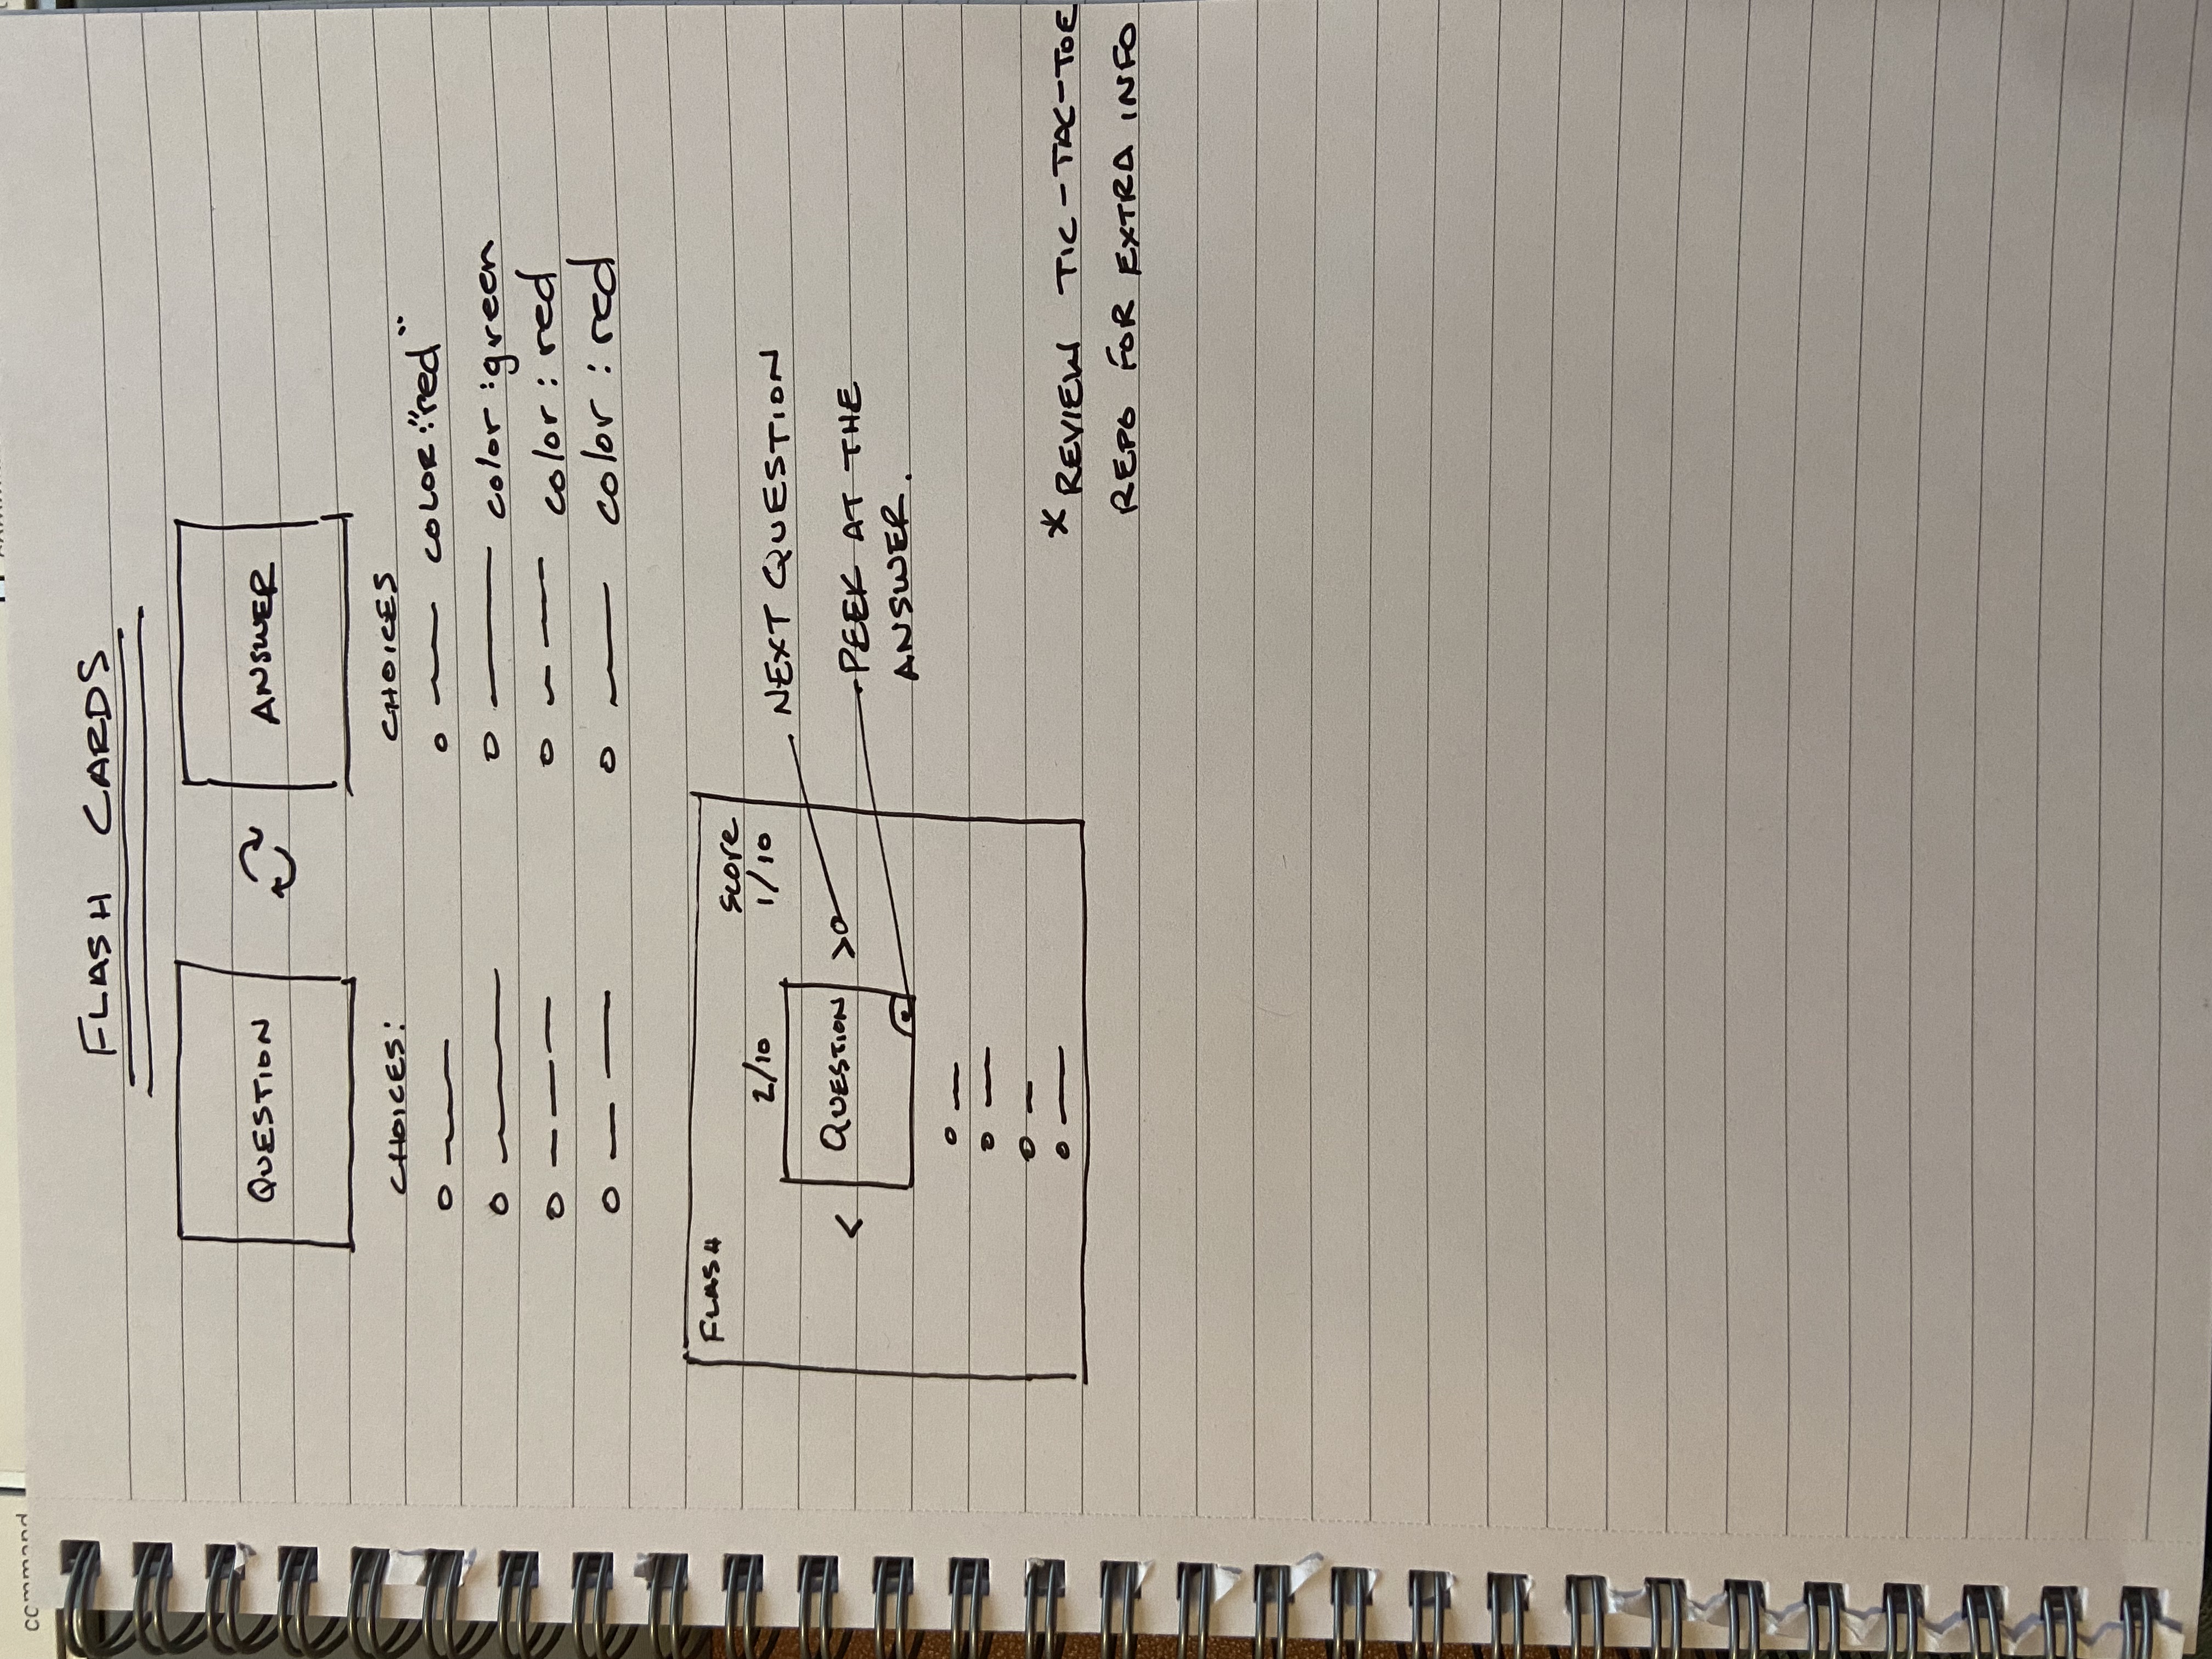 command
FLASH CARDS
QUESTION
ANSWER
CHOICES:
CHOICES
COLOR:"red"
color:green
color: red
color: red
FLASH
score
2/10
1/10
< QUESTION >
NEXT QUESTION
PEEK AT THE
ANSWER.
*REVIEW TIC-TAC-TOE
REPO FOR EXTRA INFO